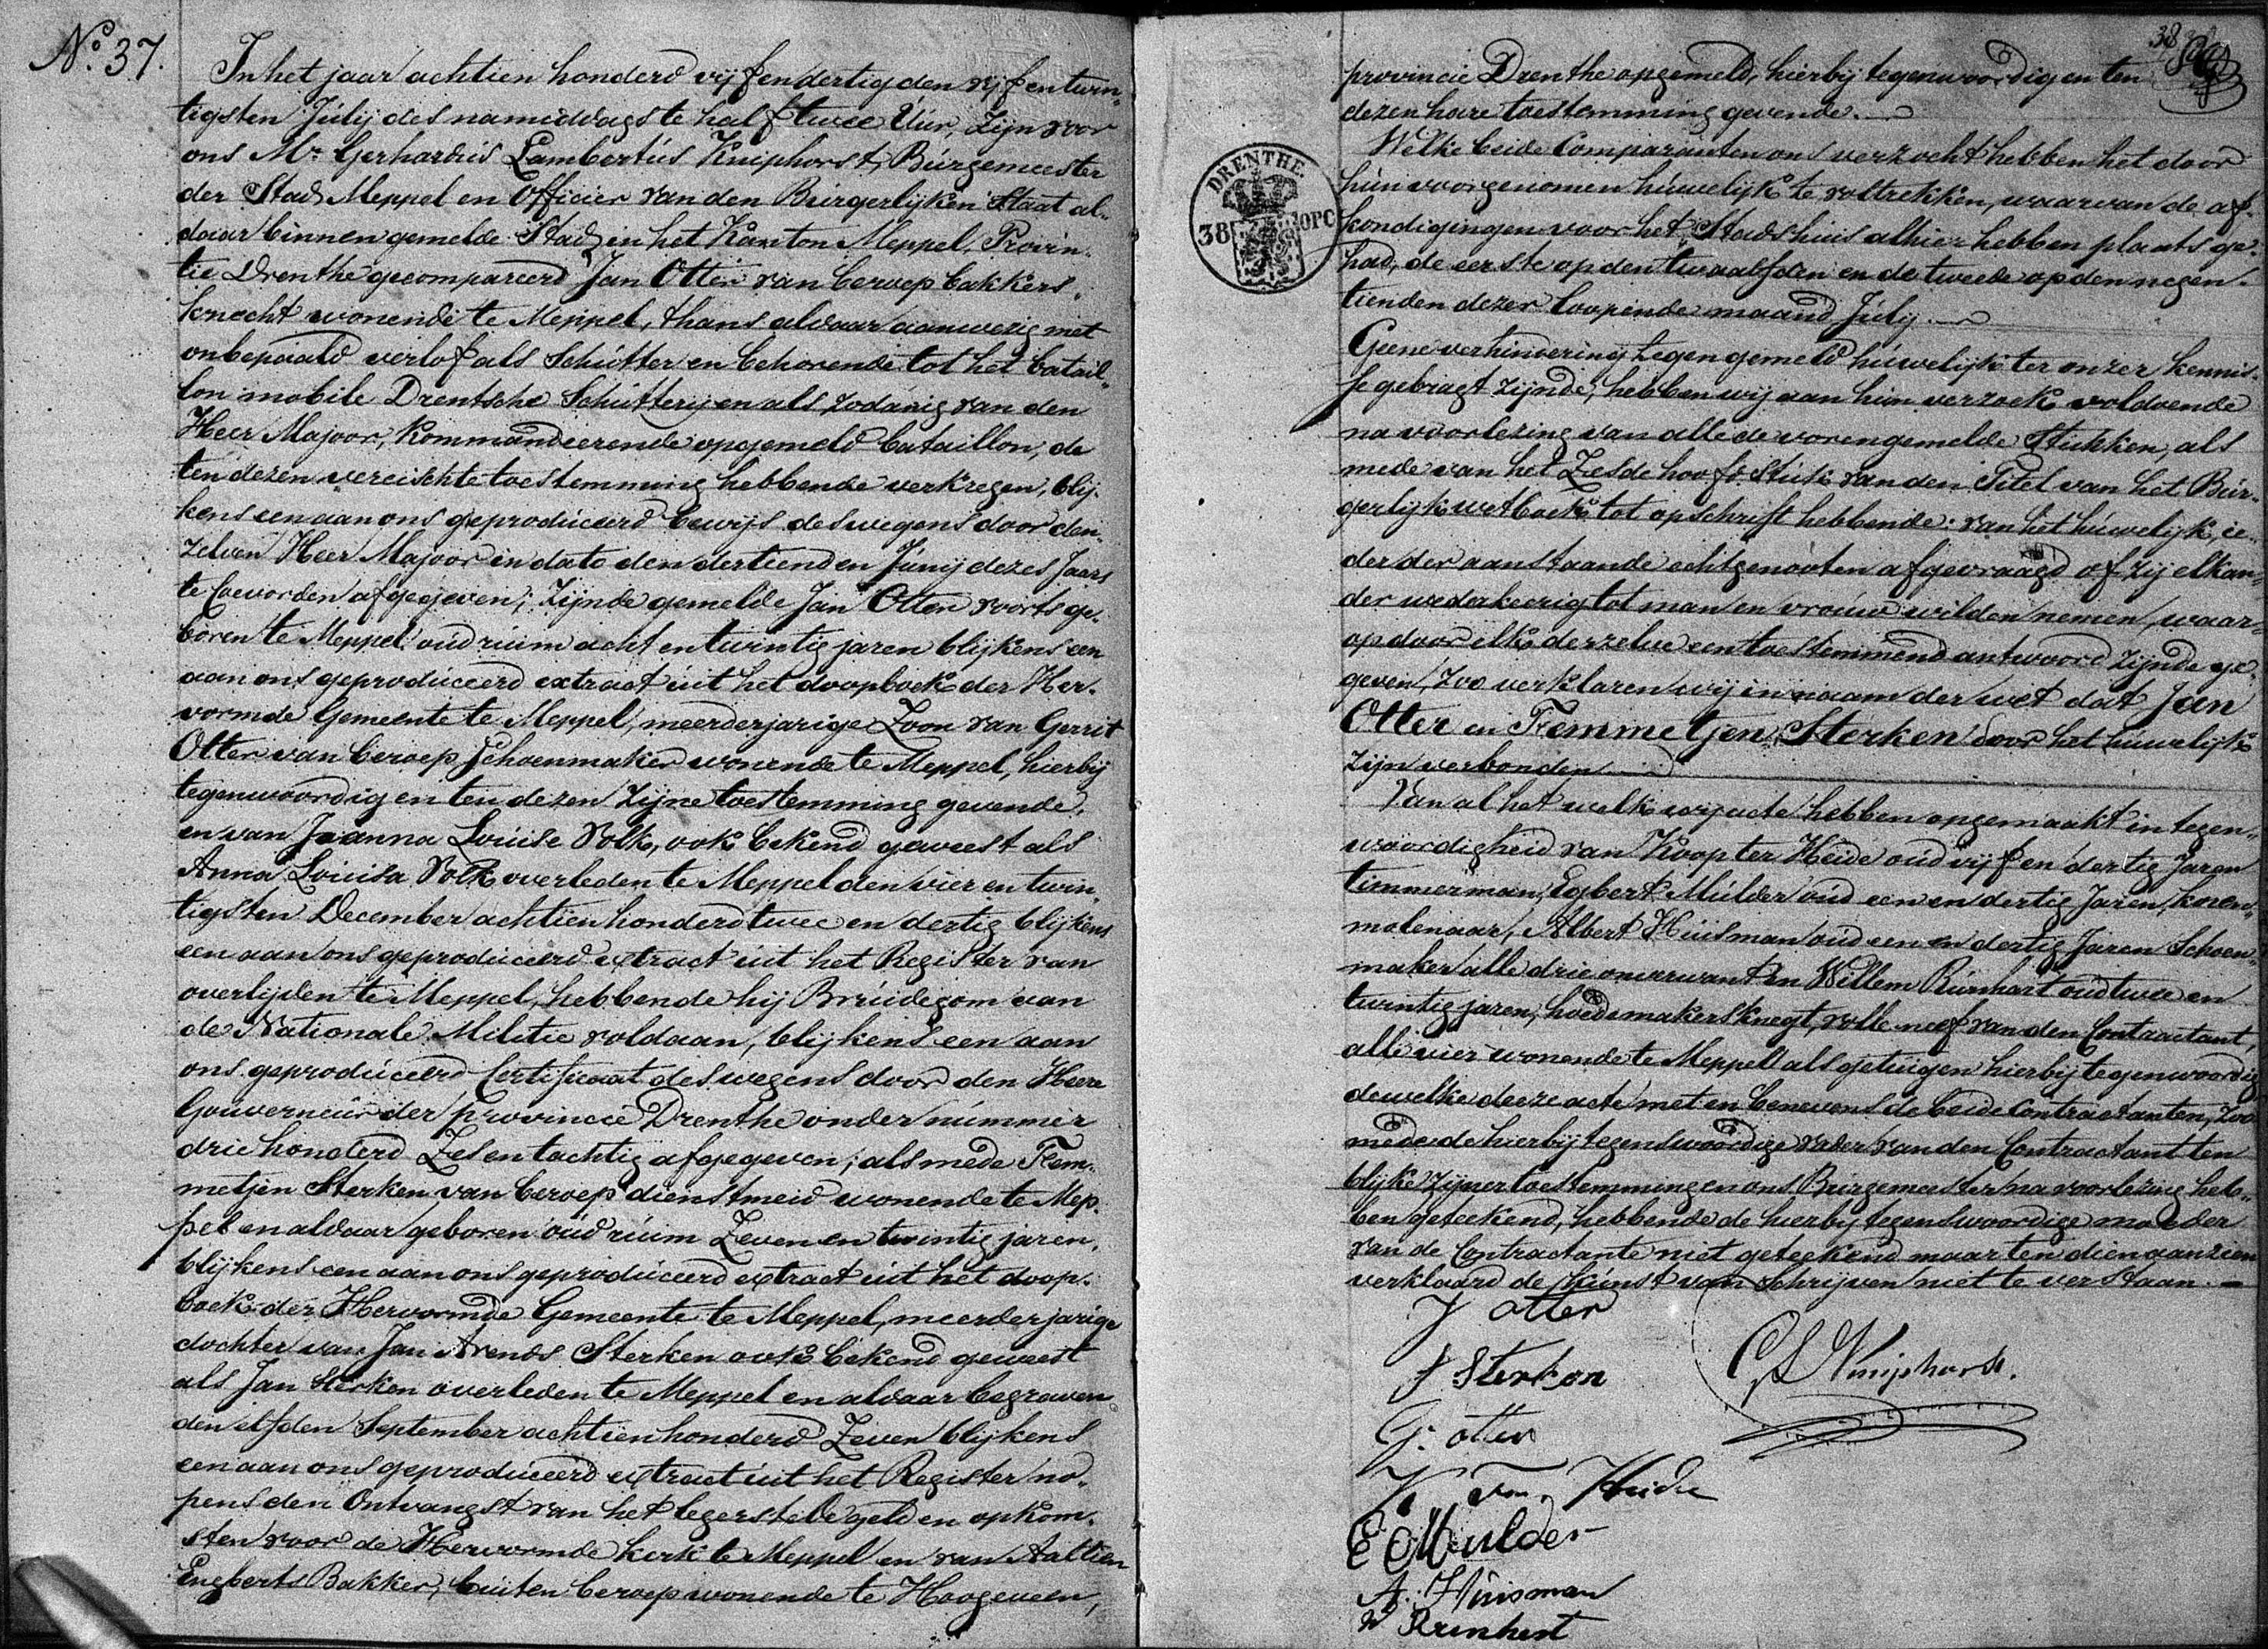 No. 37.
In het jaar achtien honderd vijf en dertig den vijf en twin„
tigsten Julij des namiddags te half twee Uur, zijn voor
ons Mr. Gerhardus Lambertus Kniphorst, Burgemeester
der Stad Meppel en Officier van den Burgerlijken Staat al„
daar binnen gemelde Stad in het Kanton Meppel, Provin„
tie Drenthe gecompareerd Jan Otter van beroep bakkers„
knecht wonende te Meppel, thans aldaar aanwezig met
onbepaald verlof als Schutter en behorende tot het batail„
lon mobile Drentsche Schutterij en als zodanig van den
Heer Majoor, kommandeerende opgemeld bataillon, de
ten dezen vereischte toestemming hebbende verkregen, blij„
kens een aan ons geproduceerd bewijs deswegens door den„
zelven Heer Majoor in dato den dertienden Junij dezes Jaars
te Coevorden afgegeven; zijnde gemelde Jan Otter voorts ge„
boren te Meppel oud ruim acht en twintig jaren blijkens een
aan ons geproduceerd extract uit het doopboek der Her„
vormde Gemeente te Meppel, meerderjarige Zoon van Gerrit
Otter van beroep Schoenmaker wonende te Meppel, hierbij
tegenwoordig en ten dezen zijne toestemming gevende,
en van Joanna Louise Volk, ook bekend geweest als
Anna Louisa Volk overleden te Meppel den vier en twin„
tigsten December achtien honderd twee en dertig blijkens
een aan ons geproduceerd extract uit het Register van
overlijden te Meppel, hebbende hij Bruidegom aan
de Nationale Militie voldaan, blijkens een aan
ons geproduceerd Certificaat deswegens door den Heere
Gouverneur der provincie Drenthe onder nummer
drie honderd Zes en tachtig afgegeven; als mede Fem„
metjen Sterken van beroep dienstmeid wonende te Mep„
pel en aldaar geboren oud ruim Zeven en twintig jaren,
blijkens een aan ons geproduceerd extract uit het doop„
boek der Hervormde Gemeente te Meppel, meerderjarige
dochter van Jan Arends Sterken ook bekend geweest
als Jan Sterken overleden te Meppel en aldaar begraven
den elfden September achtien honderd Zeven blijkens
een aan ons geproduceerd extract uit het Register no„
pens den Ontvangst van het legerstede geld en opkom„
sten voor de Hervormde kerk te Meppel en van Aaltien
Engberts Bakker, buiten beroep wonende te Hoogeveen,
38
provincie Drenthe opgemeld, hierbij tegenwoordig en ten
dezen hare toestemming gevende.
DRENTHE.
38 OPC
Welke beide Comparanten ons verzocht hebben het door
hun voorgenomen huwelijk te voltrekken, waarvan de af„
kondigingen voor het Stadshuis alhier hebben plaats ge„
had, de eerste op den twaalfden en de tweede op den negen„
tienden dezer loopende maand Julij.
Geene verhindering tegen gemeld huwelijk ter onzer kennis„
se gebragt zijnde, hebben wij aan hun verzoek voldoende
na voorlezing van alle de vorengemelde Stukken, als
mede van het Zesde hoofdstuk van den Titel van het Bur„
gerlijk wetboek tot opschrift hebbende: van het huwelijk, ie„
der der aanstaande echtgenooten afgevraagd of zij elkan„
der wederkeerig tot man en vrouw wilden nemen, waar„
op door elk derzelve een toestemmend antwoord zijnde ge„
geven, Zoo verklaren wij in naam der wet dat Jan
Otter en Femmetjen Sterken door het huwelijk
zijn verbonden
Van al het welk wij acte hebben opgemaakt in tegen„
woordigheid van Koop ter Heide oud vijf en dertig Jaren
timmerman, Egbert Mulder oud een en dertig Jaren, koren„
molenaar, Albert Huisman oud een en dertig Jaren Schoen„
maker alle drie onverwant en Willem Runhart oud twee en
twintig jaren, hoedemakersknegt, volle neef van den Contractant,
alle vier wonende te Meppel als getuigen hierbij tegenwoordig
dewelke deeze acte met en benevens de beide Contractanten, zoo
mede de hierbij tegenswoordige vader van den Contractant ten
blijke zijner toestemming en ons Burgemeester na voorlezing heb„
ben geteekend, hebbende de hierbij tegenswoordige moeder
van de Contractante niet geteekend maar ten dien aanzien
verklaard de kunst van Schrijven niet te verstaan.
J otter
f Sterken
GL Kniphorst.
G: otter
K ter Heide
E Mulder
A: Huisman
W Runhert